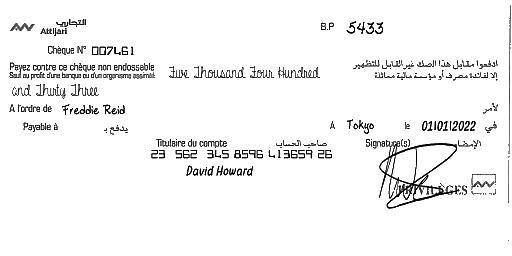 التجاري
Attijari
B.P 5433
Chèque N° 007461
Payez contre ce chèque non endossable
Sauf au profit d'une banque ou d'un organisme assimilé
Five Thousand Four Hundred
ادفعوا مقابل هذا الصك غير القابل للتظهير
إلا لفائدة مصرف أو مؤسسة مالية مماثلة
and Thirty Three
A l'ordre de Freddie Reid
لأمر
Payable à يدفع بـ
A Tokyo le 01/01/2022 في
Titulaire du compte صاحب الحساب
Signature(s) الإمضاء
23 562 345 8596 413659 26
David Howard
PRIVILÈGES